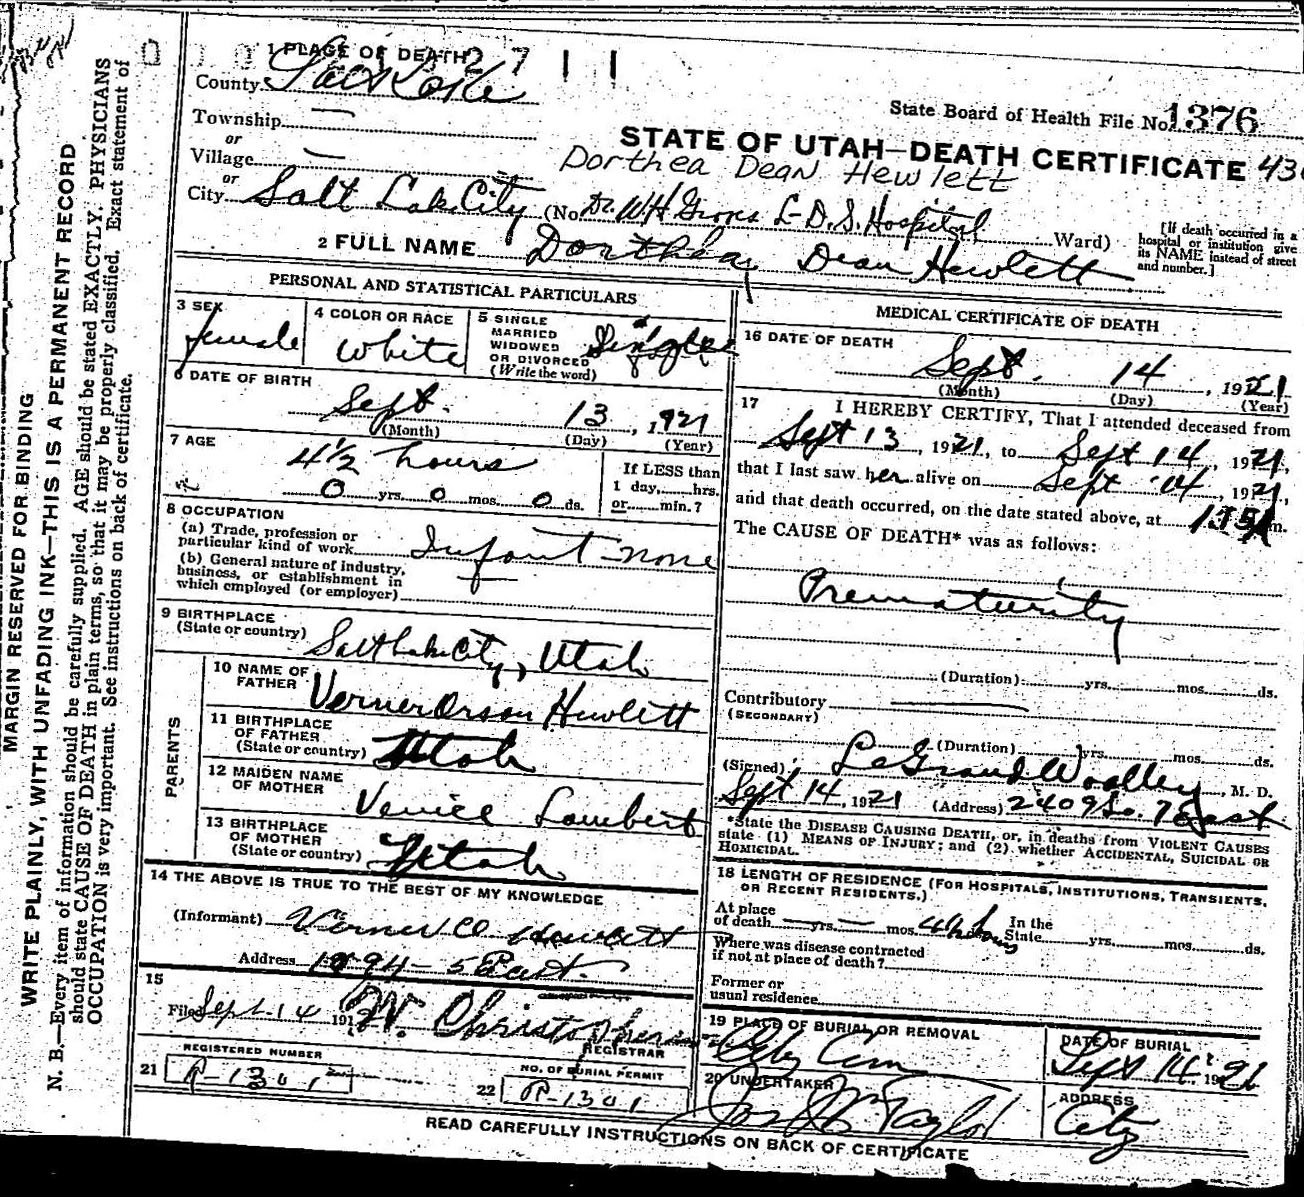 1 PLACE OF DEATH
County Salt Lake
State Board of Health File No. 1376
Township —
or
STATE OF UTAH—DEATH CERTIFICATE
Village —
Dorthea Dean Hewlett
or
City Salt Lake City (No. Dr. W H Groves L-D.S. Hospital Ward)
[If death occurred in a hospital or institution give its NAME instead of street and number.]
2 FULL NAME Dorthea Dean Hewlett
PERSONAL AND STATISTICAL PARTICULARS
3 SEX
female
4 COLOR OR RACE
White
5 SINGLE
MARRIED
WIDOWED
OR DIVORCED
(Write the word)
Single
6 DATE OF BIRTH
Sept. 13, 1921
(Month) (Day) (Year)
7 AGE
4½ hours
0 yrs. 0 mos. 0 ds.
If LESS than
1 day, hrs.
or min.?
8 OCCUPATION
(a) Trade, profession or
particular kind of work Infant none
(b) General nature of industry,
business, or establishment in
which employed (or employer)
9 BIRTHPLACE
(State or country) Salt Lake City, Utah
PARENTS
10 NAME OF
FATHER Verner Orson Hewlett
11 BIRTHPLACE
OF FATHER
(State or country) Utah
12 MAIDEN NAME
OF MOTHER Venice Lambert
13 BIRTHPLACE
OF MOTHER
(State or country) Utah
14 THE ABOVE IS TRUE TO THE BEST OF MY KNOWLEDGE
(Informant) Hewlett
Address 5 East.
15
Filed Sept. 14 191 Christophersen
REGISTRAR
REGISTERED NUMBER
21 P-1301
NO. OF BURIAL PERMIT
22 P-1301
MEDICAL CERTIFICATE OF DEATH
16 DATE OF DEATH
Sept. 14, 1921
(Month) (Day) (Year)
17 I HEREBY CERTIFY, That I attended deceased from
Sept 13, 1921, to Sept 14, 1921,
that I last saw her alive on Sept 14, 1921,
and that death occurred, on the date stated above, at m.
The CAUSE OF DEATH* was as follows:
Prematurity
(Duration) yrs. mos. ds.
Contributory
(SECONDARY)
(Duration) yrs. mos. ds.
(Signed) LeGrand Woolley, M. D.
Sept 14, 1921 (Address) 2409 So. 7 East
*State the DISEASE CAUSING DEATH, or, in deaths from VIOLENT CAUSES
state (1) MEANS OF INJURY; and (2) whether ACCIDENTAL, SUICIDAL OR
HOMICIDAL.
18 LENGTH OF RESIDENCE (FOR HOSPITALS, INSTITUTIONS, TRANSIENTS,
OR RECENT RESIDENTS.)
At place
of death — yrs. — mos. 4½ hours In the
State yrs. mos. ds.
Where was disease contracted
if not at place of death?
Former or
usual residence
19 PLACE OF BURIAL OR REMOVAL
City Cem
DATE OF BURIAL
Sept 14 1921
20 UNDERTAKER
Taylor
ADDRESS
City
READ CAREFULLY INSTRUCTIONS ON BACK OF CERTIFICATE
MARGIN RESERVED FOR BINDING
WRITE PLAINLY, WITH UNFADING INK—THIS IS A PERMANENT RECORD
N. B.—Every item of information should be carefully supplied. AGE should be stated EXACTLY. PHYSICIANS
should state CAUSE OF DEATH in plain terms, so that it may be properly classified. Exact statement of
OCCUPATION is very important. See instructions on back of certificate.